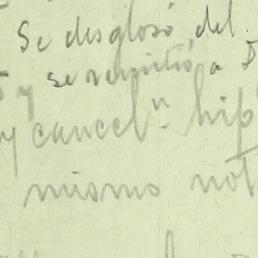 Se desglosó del
y se remitió a D
y cancelⁿ. hip
mismo not